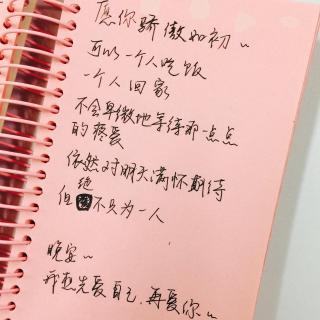 愿你骄傲如初~
可以一个人吃饭
一个人回家
不会卑微地等待那一点点
的疼爱
依然对明天满怀期待
但绝不只为一人
晚安~
我想先爱自己,再爱你~